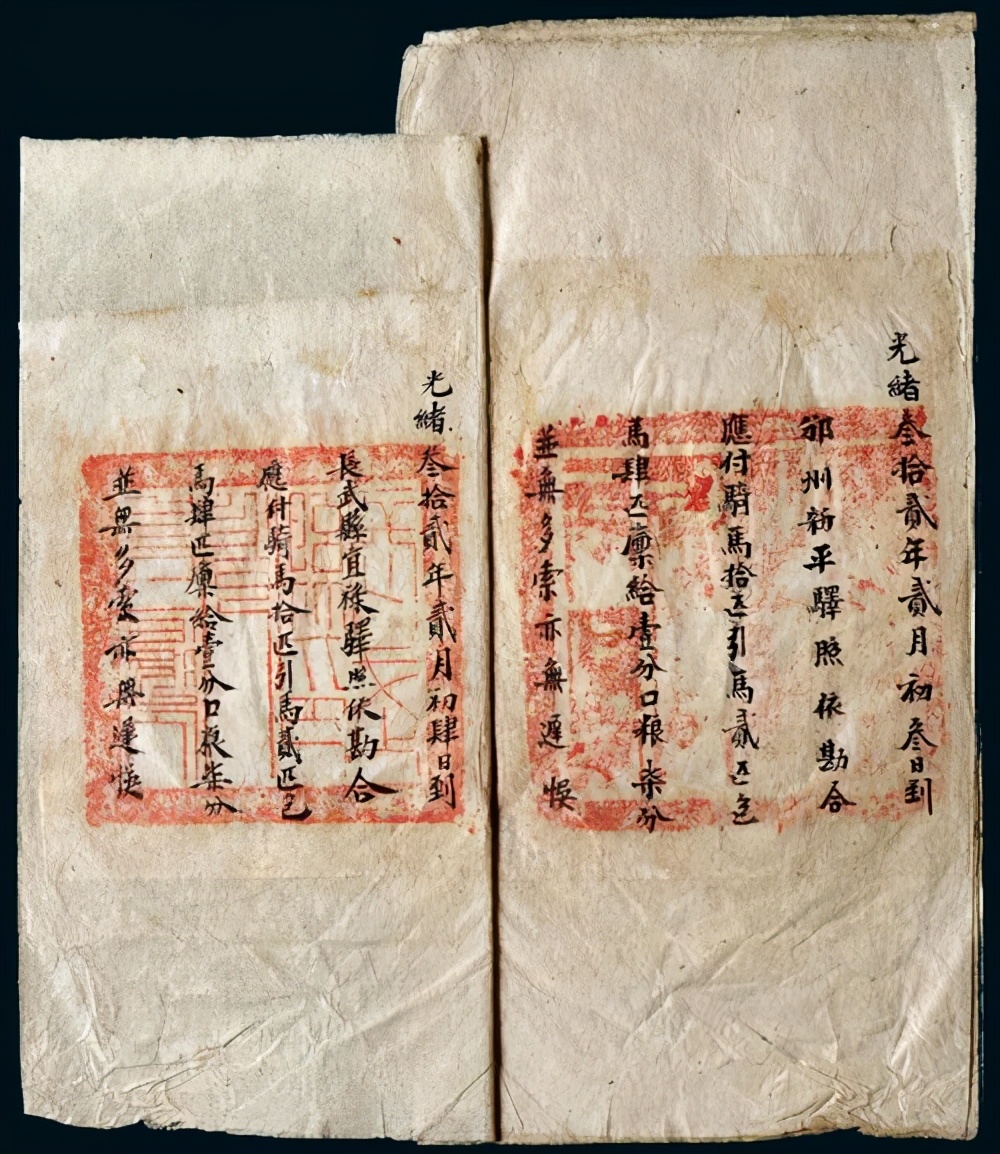 光緒叁拾貳年貳月初叁日到
邠州新平驛照依勘合
應付騎馬拾匹引馬貳匹包
馬肆匹廪給壹分口粮柒分
並無多索亦無遲悞
光緒叁拾貳年貳月初肆日到
長武縣宜祿驛照依勘合
應付騎馬拾匹引馬貳匹包
馬肆匹廪給壹分口粮柒分
並無多索亦無遲悞